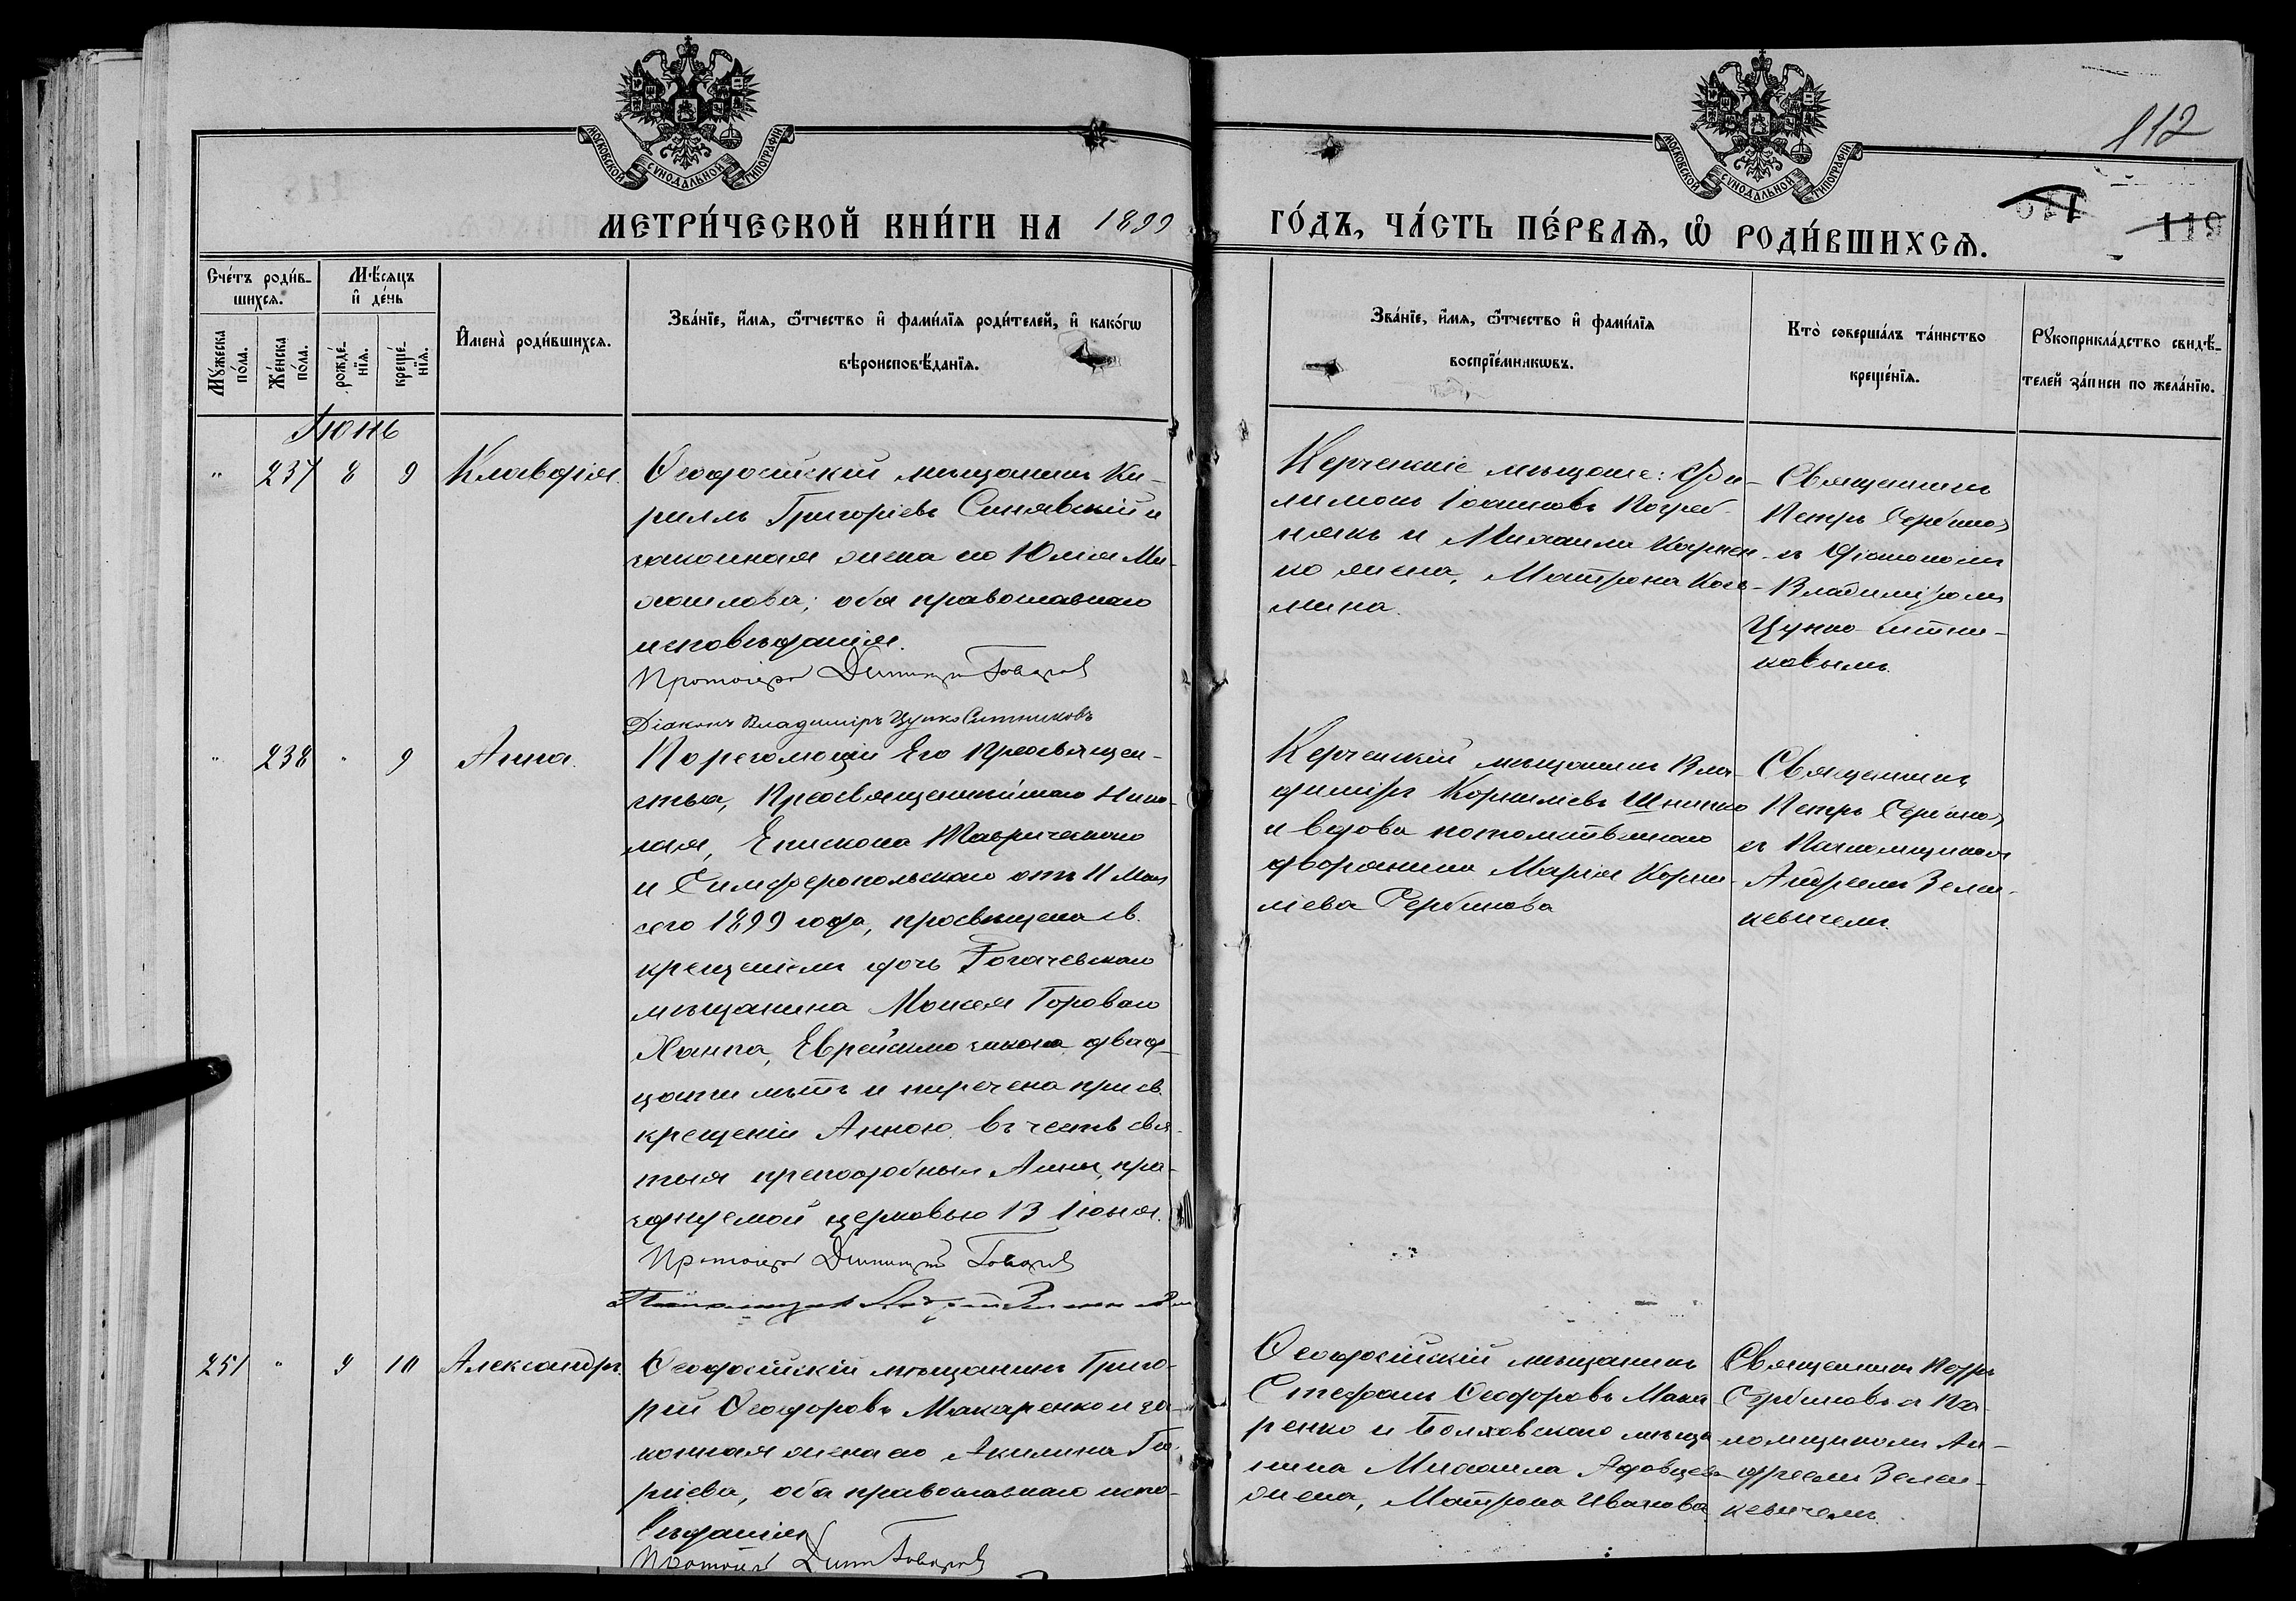 112
119
МОСКОВСКОЙ СУНОДАЛЬНОЙ ТИПОГРАФІИ
МОСКОВСКОЙ СУНОДАЛЬНОЙ ТИПОГРАФІИ
МЕТРИ́ЧЕСКОЙ КНИ́ГИ НА 1899
ГО́ДЪ, ЧА́СТЬ ПЕ́РВАѦ, Ѡ҆ РОДИ́ВШИХСѦ.
Счетъ роди́в-
шихсѧ.
Мꙋжеска по́ла.
Же́нска по́ла.
Мѣ́сѧцъ
и҆ де́нь
рожде́-
нїѧ.
креще́-
нїѧ.
И҆мена̀ роди́вшихсѧ.
Зва́нїе, и҆́мѧ, ѻ҆́тчество и҆ фами́лїѧ роди́телей, и҆ како́гѡ
вѣроисповѣ́данїѧ.
Зва́нїе, и҆́мѧ, ѻ҆́тчество и҆ фами́лїѧ
воспрїе́мникѡвъ.
Кто̀ совершáлъ та́инство
креще́нїѧ.
Рꙋкоприкла́дство свидѣ́-
телей за́писи по жела́нїю.
Іюнь
" 237 8 9 Клавдія.
Ѳеодосійскій мѣщанинъ Ки-
риллъ Григоріевъ Синявскій и
законная жена его Юлія Ми-
хаилова; оба православнаго
исповѣданія.
Протоіерей Димитрій Говоровъ
Діаконъ Владиміръ Цупко Ситниковъ
Керченскіе мѣщане: Фи-
лимонъ Іоанновъ Погреб-
някъ и Михаила Карпен-
ко жена, Матрона Кось-
мина.
Священникъ
Петръ Сербиновъ
съ Діакономъ
Владиміромъ
Цупко-Ситни-
ковымъ.
" 238 " 9 Анна.
По резолюціи Его Преосвящен-
ства, Преосвященнѣйшаго Нико-
лая, Епископа Таврическаго
и Симферопольскаго отъ 11 Мая
сего 1899 года, просвѣщена св.
крещеніемъ дочь Рогачевскаго
мѣщанина Моисея Горового
Ханна, Еврейскаго закона, двад-
цати лѣтъ и наречена при св.
крещеніи Анною въ честь свя-
тыя преподобныя Анны, пра-
зднуемой церковью 13 Іюня.
Протоіерей Димитрій Говоровъ
Керченскій мѣщанинъ Вла-
диміръ Корниліевъ
и вдова потомственнаго
дворянина Марія Корни-
ліева Сербинова
Священникъ
Петръ Сербиновъ
съ Псаломщикомъ
Андреемъ Зелен-
кевичемъ.
251 " 9 10 Александръ.
Ѳеодосійскій мѣщанинъ Григо-
рій Ѳеодоровъ Макаренко и за-
конная жена его Акилина Гео-
ргіева, оба православнаго испо-
вѣданія
Протоіерей Димит Говоровъ
Ѳеодосійскій мѣщанинъ
Стефанъ Ѳеодоровъ Мака-
ренко и Болховского мѣща-
нина Михаила
жена, Матрона Иванова.
Священникъ Петръ
Сербиновъ съ Пса-
ломщикомъ Ан-
дреемъ Зелен-
кевичемъ.